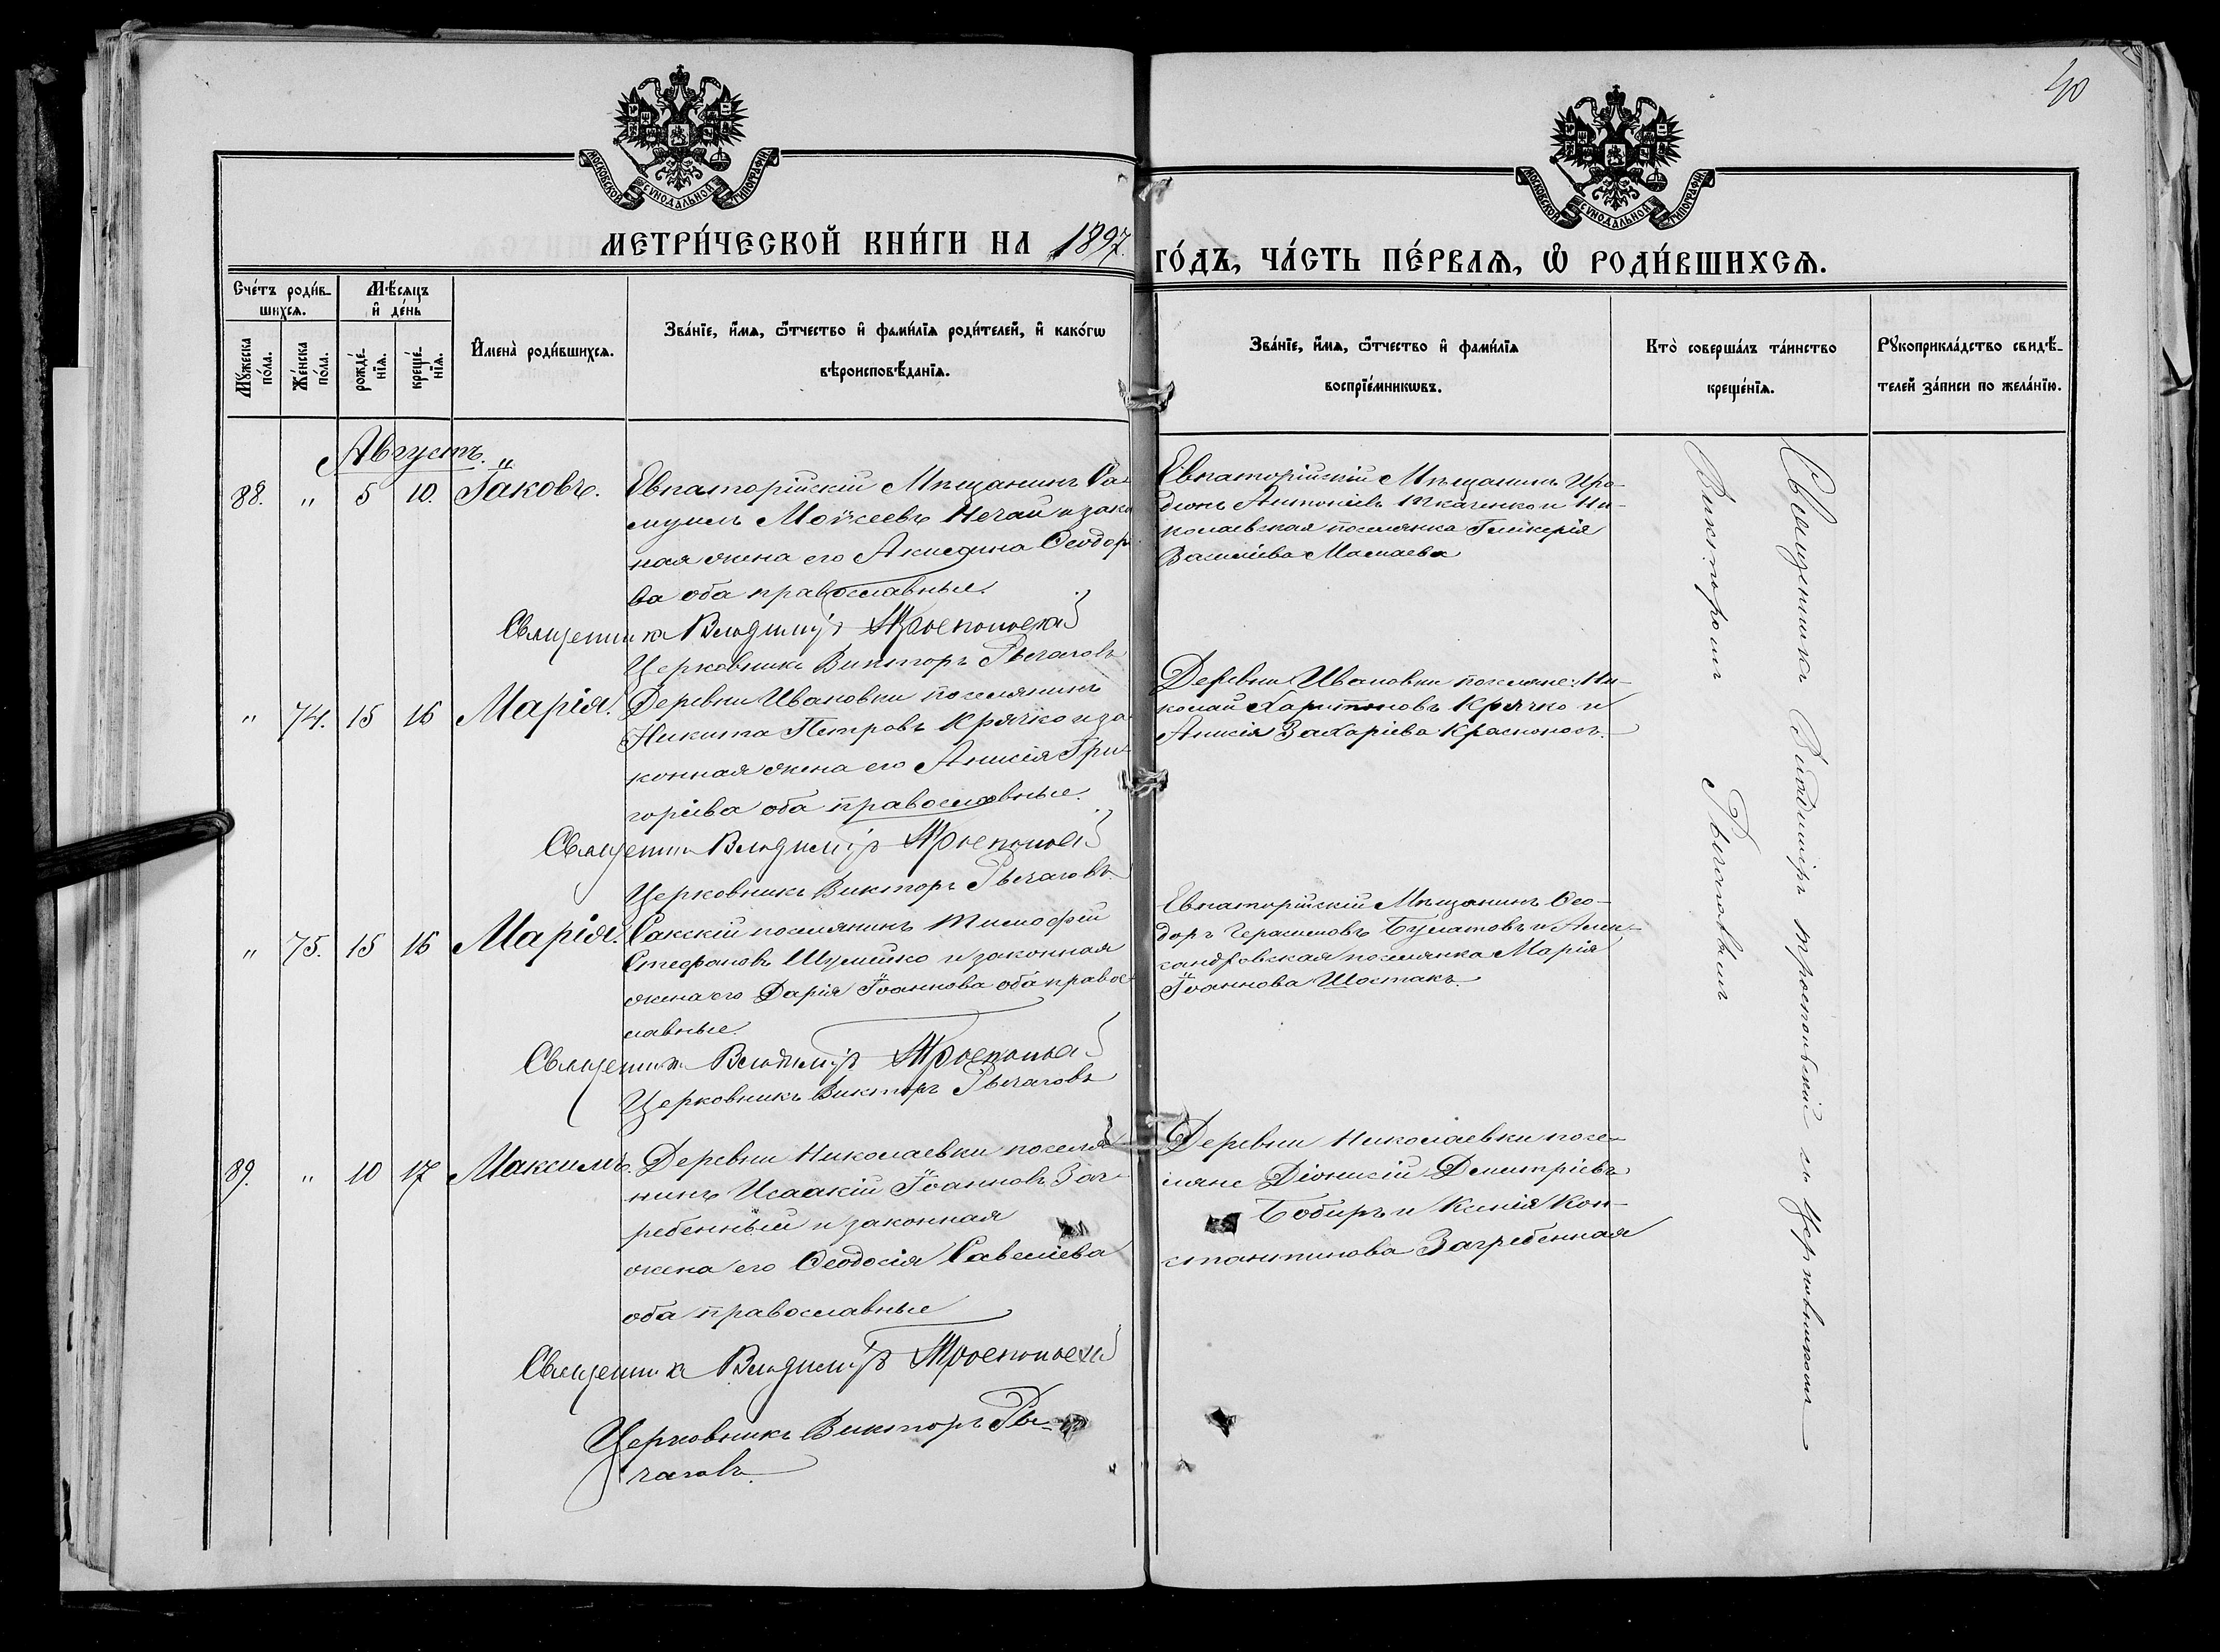 40
МОСКОВСКОЙ СѴНОДАЛЬНОЙ ТИПОГРАФІИ
МОСКОВСКОЙ СѴНОДАЛЬНОЙ ТИПОГРАФІИ
МЕТРИ́ЧЕСКОЙ КНИ́ГИ НА 1897.
ГО́ДЪ, ЧА́СТЬ ПЕ́РВАѦ, Ѡ РОДИ́ВШИХСѦ.
Сче́тъ роди́в-
шихсѧ.
Мѣсѧцъ
и де́нь
Мꙋжеска
по́ла.
Же́нска
по́ла.
рожде́-
нїѧ.
креще́-
нїѧ.
Имена̀ роди́вшихсѧ.
Зва́нїе, и́мѧ, ѻ́тчество и фами́лїѧ роди́телей, и како́гѡ
вѣроисповѣ́данїѧ.
Зва́нїе, и́мѧ, ѻ́тчество и фами́лїѧ
воспрїе́мникѡвъ.
Кто̀ соверша́лъ та́инство
креще́нїѧ.
Рꙋкоприкла́дство свидѣ́-
телей за́писи по жела́нїю.
Августъ.
88. " 5 10. Іаковъ.
Евпаторійскій Мѣщанинъ Са-
муилъ Моѵсеевъ Нечай и закон
ная жена его Акилина Ѳеодоро
ва оба православные.
Священникъ Владиміръ Троепольскій
Церковникъ Викторъ Рычаговъ
Евпаторійскій Мѣщанинъ Иро-
діонъ Антоніевъ Ткаченко и Ни-
колаевская поселянка Гликерія
Василіева Мамаева
" 74. 15 16 Марія.
Деревни Ивановки поселянинъ
Никита Петровъ Крячко и за-
конная жена его Анисія Гри-
горіева оба православные.
Священникъ Владиміръ Троепольскій
Церковникъ Викторъ Рычаговъ
Деревни Ивановки поселяне: Ни-
колай Харитоновъ Крячко и
Анисія Захаріева Красноносъ.
" 75. 15 16 Марія.
Сакскій поселянинъ Тимофей
Стефановъ Шумейко и законная
жена его Дарія Іоаннова оба право-
славные.
Священникъ Владиміръ Троепольскій
Церковникъ Викторъ Рычаговъ
Евпаторійскій Мѣщанинъ Ѳео-
доръ Герасимовъ Булатовъ и Алек-
сандровская поселянка Марія
Іоаннова Шостакъ.
89. " 10 17 Максимъ.
Деревни Николаевки поселя-
нинъ Исаакій Іоанновъ Заг-
ребенный и законная
жена его Ѳеодосія Савеліева
оба православные
Священникъ Владиміръ Троепольскій
Церковникъ Викторъ Ры-
чаговъ.
Деревни Николаевки посе-
ляне Діонисій Димитріевъ
Бобиръ и Ксенія Кон-
стантинова Загребенная
Священникъ Владиміръ Троепольскій съ Церковникомъ
Викторомъ Рычаговымъ